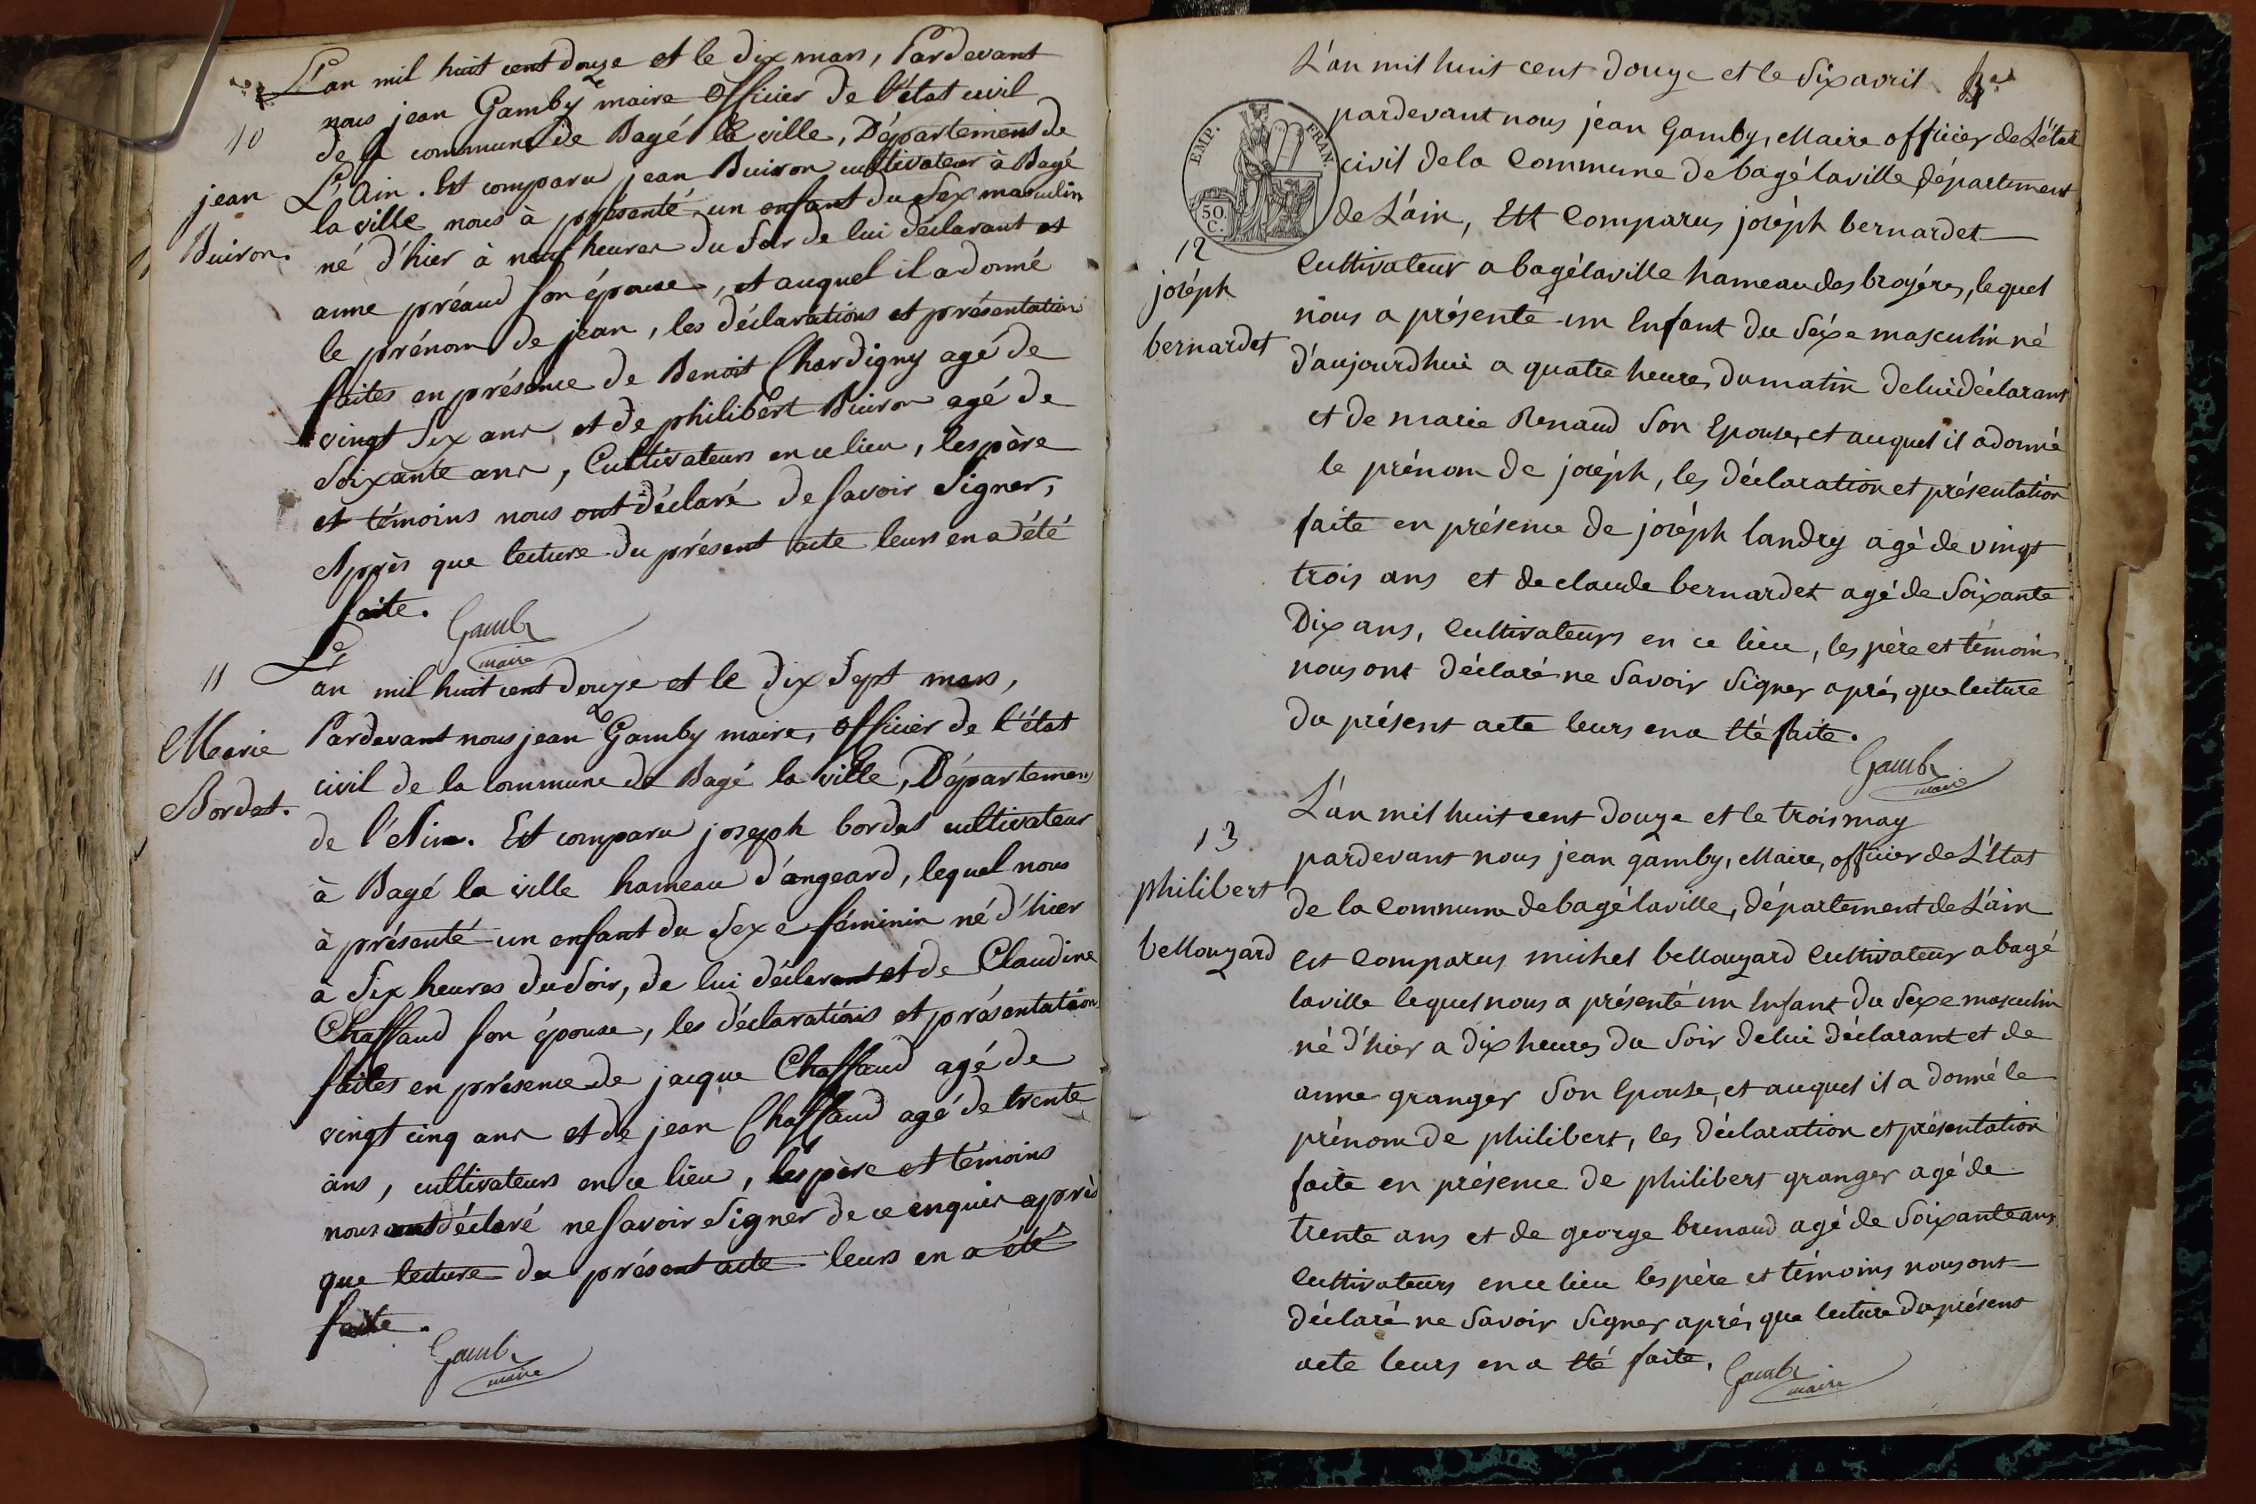 L'an mil huit cent douze et le dix mars, Pardevant
nous jean Gamby maire officier de l'état civil
de la commune de Bagé la ville, Département de
L'Ain. Est comparu jean Buiron cultivateur à Bagé
la ville nous à présenté un enfant du Sex masculin
né d'hier à neuf heures du Soir de lui déclarant et
anne préaud son épouse, et auquel il a donné
le prénom de jean, les déclarations et présentation
faites en présence de Benoit Chardigny agé de
vingt Six ans et de philibert Buiron agé de
Soixante ans, Cultivateurs en ce lieu, les père
et témoins nous ont déclaré de savoir Signer,
Après que lecture du présent acte leurs en a été
faite.
Gamby
maire
10
jean
Buiron.
L'an mil huit cent douze et le dix Sept mars,
Pardevant nous jean Gamby maire, officier de l'état
civil de la commune de Bagé la ville, Département
de l'Ain. Est comparu joseph bordat cultivateur
à Bagé la ville hameau d'angeard, lequel nous
à présenté un enfant du Sexe féminin né d'hier
à Six heures du Soir, de lui déclarant et de Claudine
Chaffaud son épouse, les déclarations et présentation
faites en présence de jacque Chaffaud agé de
vingt cinq ans et de jean Chaffaud agé de trente
ans, cultivateurs en ce lieu, les père et témoins
nous ont déclaré ne savoir Signer de ce enquis après
que lecture du présent acte leurs en a été
faite.
Gamby
maire
11
Marie
Bordat.
L'an mil huit cent douze et le Six avril
pardevant nous jean Gamby, Maire officier de L'état
civil de la Commune de bagélaville département
de L'ain, Est Comparus joséph bernardet
Cultivateur a bagélaville hameau des broyéres, lequel
nous a présente un Enfant du Séxe masculin né
d'aujourdhui a quatre heures du matin de lui déclarant
et de marie Renaud Son Epouse, et auquel il a donné
le prénom de joséph, les déclaration et présentation
faite en présence de joséph landry agé de vingt
trois ans et de claude bernardet agé de Soixante
Dix ans, Cultivateurs en ce lieu, les père et témoins
nous ont déclaré ne Savoir Signer aprés que lecture
du présent acte leurs en a Eté faite.
Gamby
maire
EMP. FRAN.
50.
C.
12
joséph
bernardet
L'an mil huit cent douze et le trois may
pardevant nous jean gamby, Maire, officier de L'Etat
de la Commune de bagélaville, département de L'ain
Est Comparus michel bellouzard Cultivateur a bagé
laville lequel nous a présenté un Enfant du Sexe masculin
né d'hier a dix heures du Soir de lui déclarant et de
anne granger Son Epouse, et auquel il a donné le
prénom de philibert, les déclaration et présentation
faite en présence de philibert granger agé de
trente ans et de george brenaud agé de Soixante ans
Cultivateurs en ce lieu les père et témoins nous ont
déclaré ne Savoir Signer aprés que lecture du présent
acte leurs en a Eté faite.
Gamby
maire
13
philibert
bellouzard